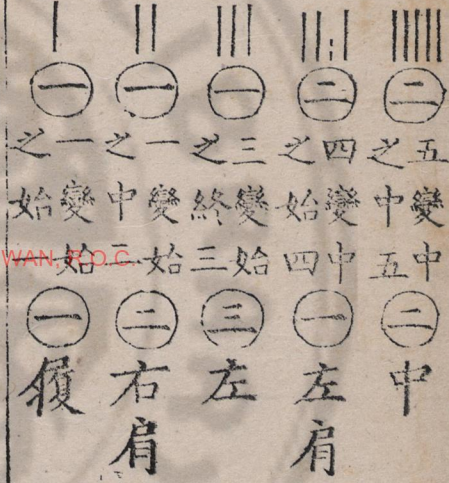 二
五變中
之中五
二
中
二
四變中
之始四
一
左肩
一
三變始
之終三
三
左
一
一變始
之中二
二
右肩
一
一變始
之始一
一
履
WAN, R.O.C.